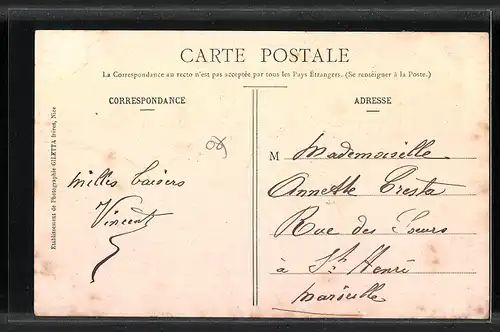 CARTE POSTALE
La Correspondance au recto n'est pas acceptée par tous les Pays Étrangers. (Se renseigner à la Poste.)
CORRESPONDANCE
milles baisers
Vincent
ADRESSE
M Mademoiselle
Annette Cresta
Rue des Sœurs
à St Henri
Marseille
Etablissement de Photographie GILETTA frères, Nice